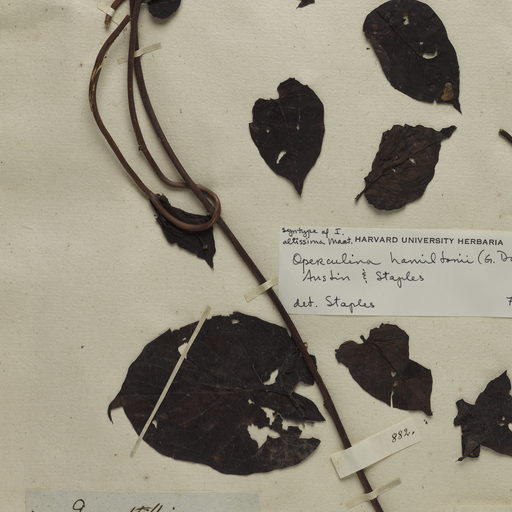 syntype of I.
altissima Mart. HARVARD UNIVERSITY HERBARIA
Operculina hamiltonii (G. Do
Austin & Staples
det. Staples
882.